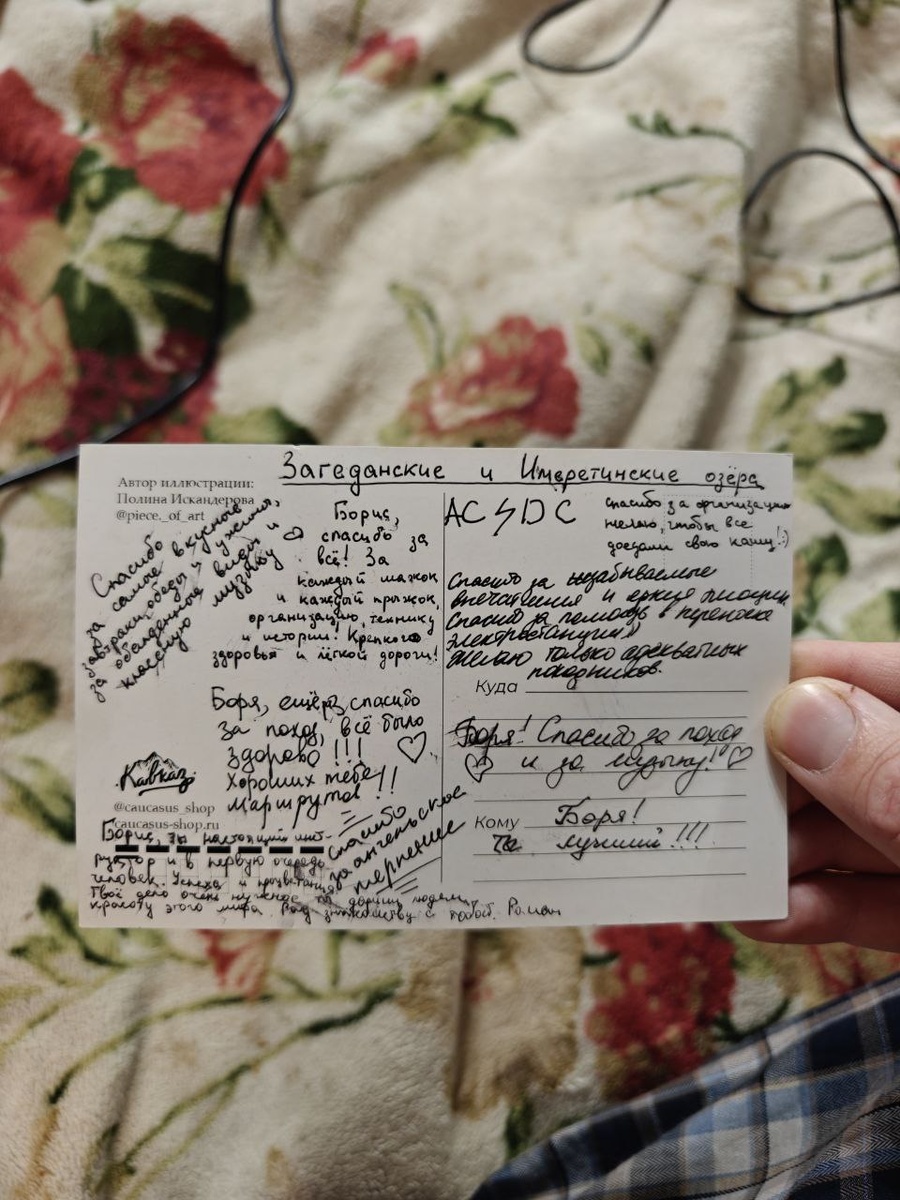 Загеданские и Имеретинские озёра
Автор иллюстрации:
Полина Искандерова
@piece._of_art
Спасибо
за самые вкусные
завтраки, обеды и ужины,
за обалденные виды и
классную музыку
Борис,
спасибо за
всё! За
каждый шажок
и каждый прыжок,
организацию, технику
и истории! Крепкого
здоровья и лёгкой дороги!
Боря, ещё рз спасибо
за поход, всё было
здорово!!!
Хороших тебе
маршрутов!!
Кавказ
@caucasus_shop
caucasus-shop.ru
Борис, ты настоящий инст-
руктор и в первую очередь
человек. Успеха и процветания
Твоё дело очень нужное ты даришь людям
красоту этого мира Рад знакомству с тобой. Роман
спасибо
за ангельское
терпение
AC⚡DC
спасибо за организацию
желаю, чтобы все
доедали свою кашу! :)
Спасибо за незабываемые
впечатления и яркие эмоции
Спасибо за помощь в переноске
электростанции))
Желаю только адекватных
походников.
Куда
Боря! Спасибо за поход
и за музыку!
Кому Боря!
Ты лучший!!!